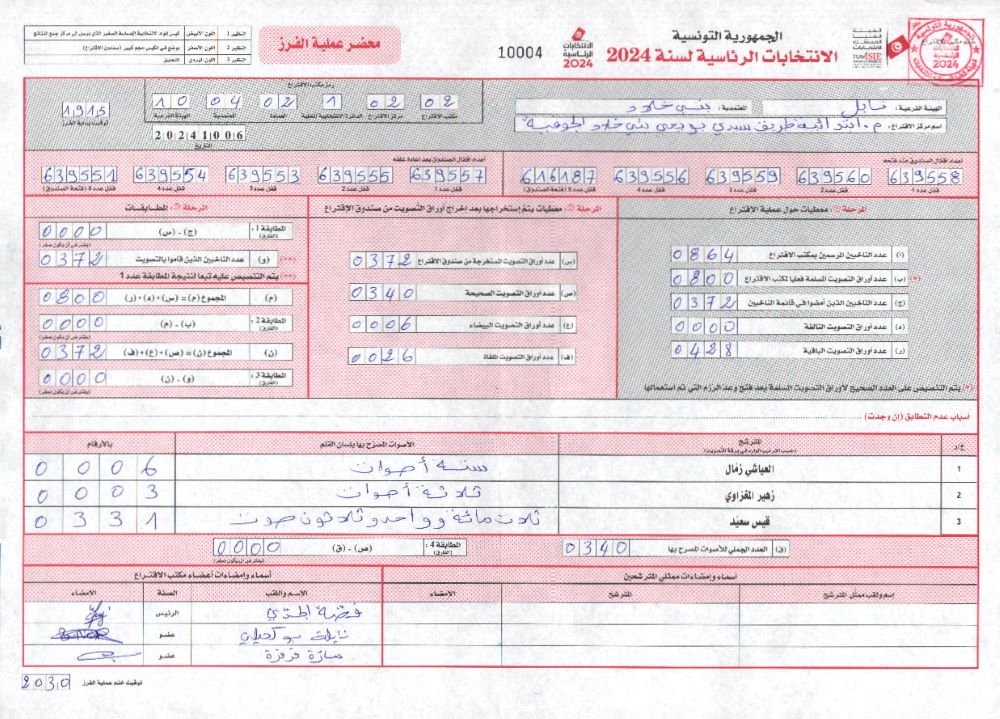 الجمهورية التونسية
الانتخابات الرئاسية لسنة 2024
الانتخابات الرئاسية 2024
10004
محضر عملية الفرز
النظير 1 اللون الأبيض
النظير 2 اللون الأصفر يوضع في الكيس مجم كبير (صندوق الاقتراع)
النظير 3 اللون الوردي التعليق
الهيئة الفرعية: نابل المعتمدية: بني خلاد
اسم مركز الاقتراع: م. ابتدائية طريق سيدي بوعلي بني خلاد الجوفية
رمز مكتب الاقتراع
02 02 1 02 04 10
مكتب الاقتراع مركز الاقتراع الدائرة الانتخابية المحلية العمادة المعتمدية الهيئة الفرعية
20241006
التاريخ
1915
توقيت بداية الفرز
أعداد أقفال الصندوق عند فتحه
639558 639560 639559 639556 616187
قفل عدد 1 قفل عدد 2 قفل عدد 3 قفل عدد 4 قفل عدد 5 (فتحة الصندوق)
أعداد أقفال الصندوق بعد إعادة غلقه
639557 639555 639553 639554 639551
قفل عدد 1 قفل عدد 2 قفل عدد 3 قفل عدد 4 قفل عدد 5 (فتحة الصندوق)
المرحلة ①: معطيات حول عملية الاقتراع
(أ) عدد الناخبين المرسمين بمكتب الاقتراع 0864
(*) (ب) عدد أوراق التصويت المسلمة فعليا لمكتب الاقتراع 0800
(ج) عدد الناخبين الذين أمضوا في قائمة الناخبين 0372
(د) عدد أوراق التصويت التالفة 0000
(ر) عدد أوراق التصويت الباقية 0428
(*) يتم التنصيص على العدد الصحيح لأوراق التصويت المسلمة بعد فتح وعد الرزم التي تم استعمالها
المرحلة ②: معطيات يتم إستخراجها بعد إخراج أوراق التصويت من صندوق الاقتراع
(س) عدد أوراق التصويت المستخرجة من صندوق الاقتراع 0372
(ص) عدد أوراق التصويت الصحيحة 0340
(ع) عدد أوراق التصويت البيضاء 0006
(ف) عدد أوراق التصويت الملغاة 0026
المرحلة ③: المطابقات
المطابقة 1: (الفارق) (ج) - (س) 0000
(يفترض أن يكون صفر)
(**) (و) عدد الناخبين الذين قاموا بالتصويت 0372
(**) يتم التنصيص عليه تبعا لنتيجة المطابقة عدد 1
(م) المجموع (م) = (س) + (د) + (ر) 0800
المطابقة 2: (الفارق) (ب) - (م) 0000
(يفترض أن يكون صفر)
(ن) المجموع (ن) = (ص) + (ع) + (ف) 0372
المطابقة 3: (الفارق) (و) - (ن) 0000
(يفترض أن يكون صفر)
أسباب عدم التطابق (إن وجدت)
ع/د المترشح الأصوات المصرح بها بلسان القلم بالأرقام
(حسب الترتيب الوارد في ورقة التصويت)
1 العياشي زمال ستة أصوات 0006
2 زهير المغزاوي ثلاثة أصوات 0003
3 قيس سعيد ثلاث مائة وواحد وثلاثون صوت 0331
(ق) العدد الجملي للأصوات المصرح بها 0340
المطابقة 4: (الفارق) (ص) - (ق) 0000
(يفترض أن يكون صفر)
أسماء وإمضاءات ممثلي المترشحين
إسم ولقب ممثل المترشح المترشح الامضاء
أسماء وإمضاءات أعضاء مكتب الاقتراع
الاسم واللقب الصفة الامضاء
الرئيس
عضو
سارة قزقزة عضو
توقيت ختم عملية الفرز 2030